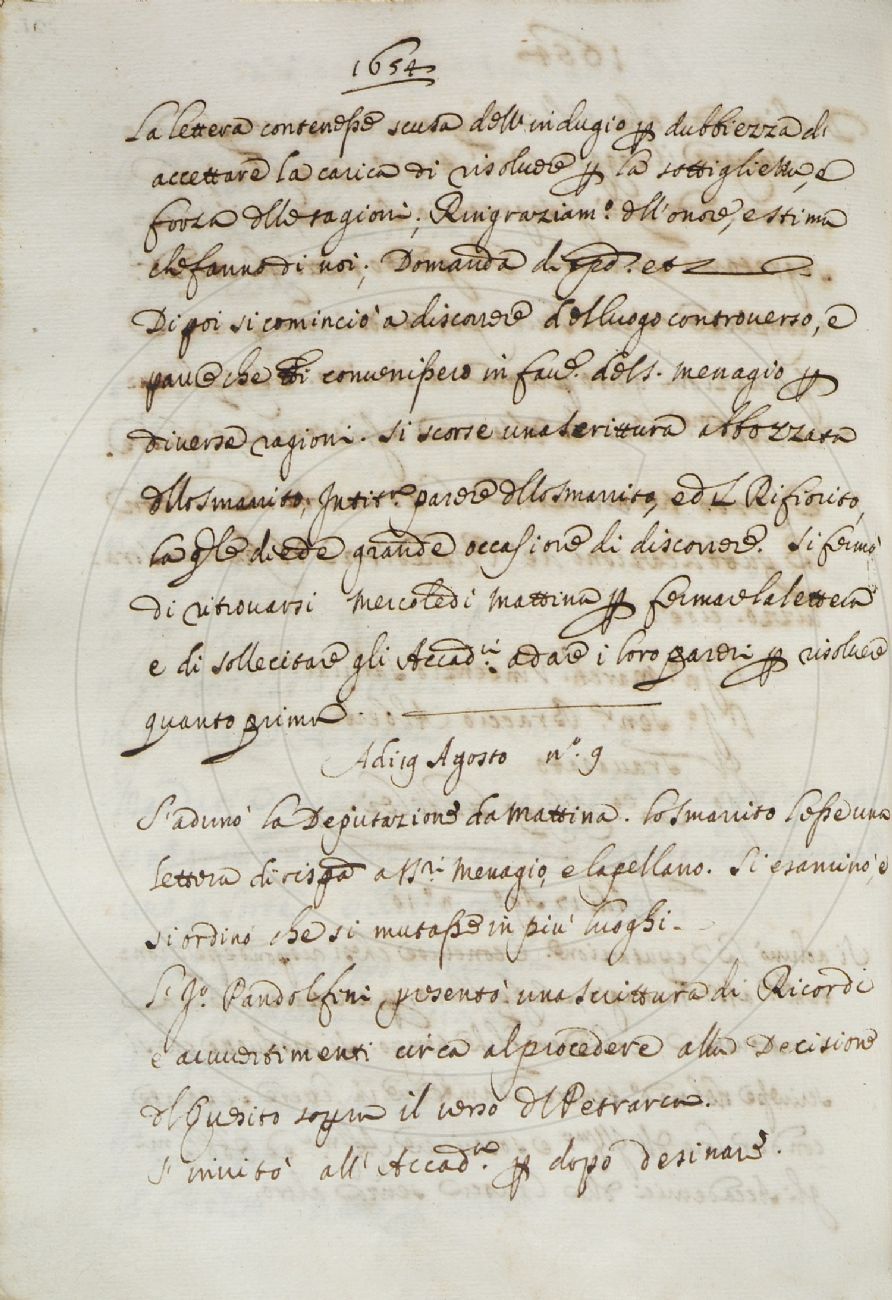 1654
La lettera contenesse scusa dell'indugio p dubbiezza di
accettare la carica di risolvere p la sottigliezza, e
forza dlle ragioni; Ringraziam.º dll'onore, e stima
che fanno di noi; Domanda di
Di poi si cominciò a discorrere del luogo controverso, e
parve che si convenissero in fav.e del S. Menagio p
diverse ragioni. Si scorse una scrittura abbozzata
dllo Smarrito, Intit.ta parere dllo Smarrito, ed il Rifiorito,
la qle diede grande occasione di discorrere. Si fermò
di ritrovarsi Mercoledi Mattina p fermare la lettera
e di sollecitare gli Accad.ci a dare i loro pareri p risolvere
quanto prima.
Adi 19 Agosto nº. 9
S'adunò la Deputazione la Mattina. Lo Smarrito lesse una
lettera di rispta a SS.ri Menagio, e Capellano. Si esaminò, e
si ordinò che si mutasse in più luoghi.
S.r Pandolfini presentò una scrittura di Ricordi
e avvertimenti circa al procedere alla Decisione
dl Quesito sopra il verso dl Petrarca.
S'invitò all'Accad.ia p dopo desinare.